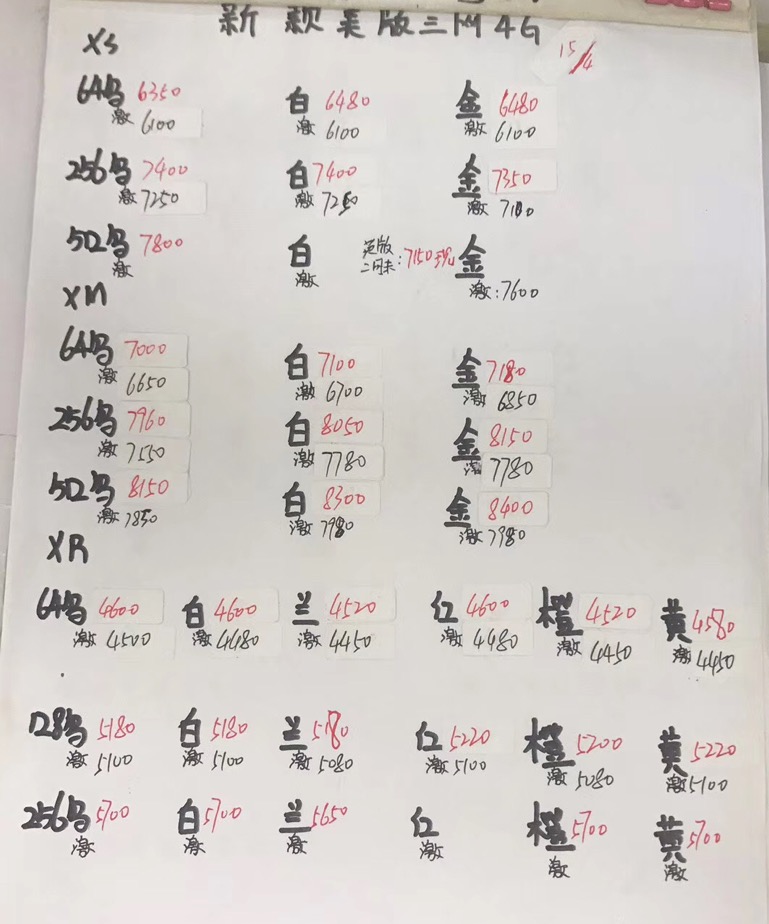 新款美版三网4G
15/4
XS
64乌 6350 白 6480 金 6480
激 6100 激 6100 激 6100
256乌 7400 白 7400 金 7350
激 7250 激 7250 激 7100
512乌 7800 白 英版 金
激 激 二网未:7150 激:7600
XM
64乌 7000 白 7100 金 7180
激 6650 激 6700 激 6850
256乌 7960 白 8050 金 8150
激 7550 激 7780 激 7780
512乌 8150 白 8300 金 8400
激 7850 激 7980 激 7980
XR
64乌 4600 白 4600 兰 4520 红 4600 橙 4520 黄 4580
激 4500 激 4480 激 4450 激 4480 激 4450 激 4450
128乌 5180 白 5180 兰 5180 红 5220 橙 5200 黄 5220
激 5100 激 5100 激 5080 激 5100 激 5080 激 5100
256乌 5700 白 5700 兰 5650 红 橙 5700 黄 5700
激 激 激 激 激 激